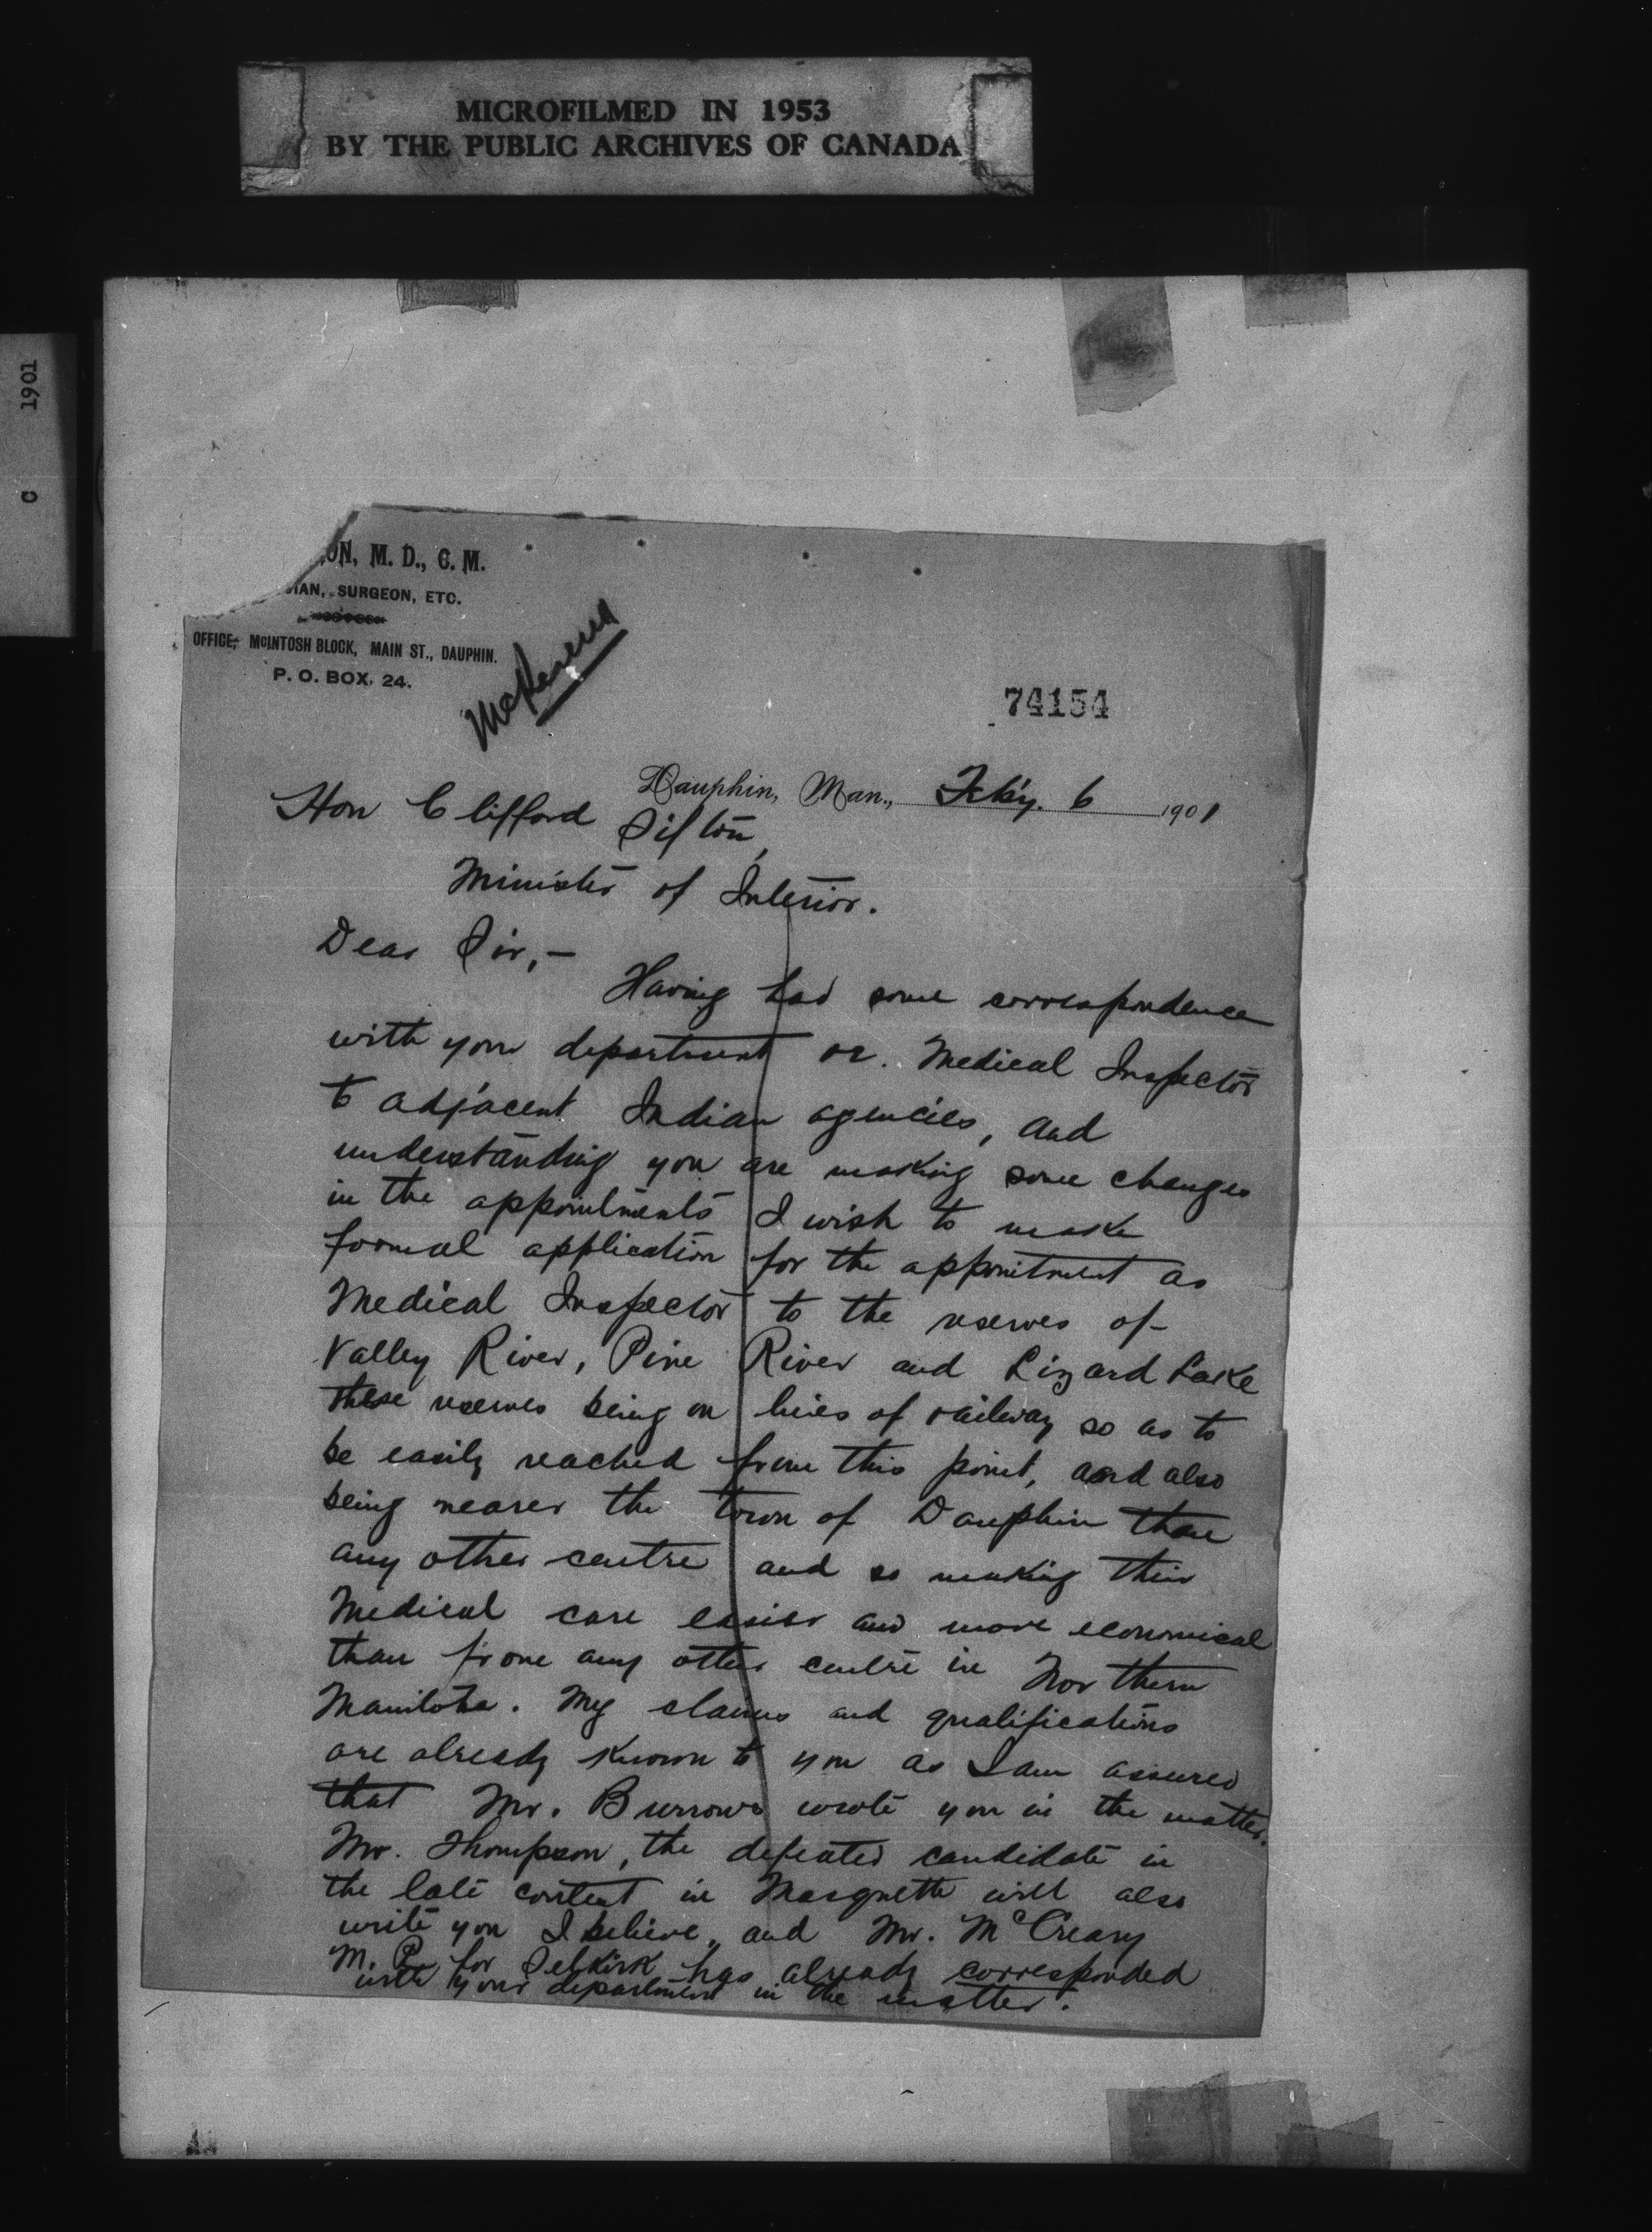 MICROFILMED IN 1953
BY THE PUBLIC ARCHIVES OF CANADA
C 1901
ON, M. D., C. M.
IAN, SURGEON, ETC.
OFFICE; MCINTOSH BLOCK, MAIN ST., DAUPHIN.
P. O. BOX. 24.
74154
Dauphin, Man., Feby. 6 1901
Hon Clifford Sifton,
Minister of Interior.
Dear Sir,-
Having had some correspondence
with your department re. Medical Inspector
to adjacent Indian agencies, and
understanding you are making some changes
in the appointments I wish to make
formal application for the appointment as
Medical Inspector to the reserves of
Valley River, Pine River and Lizard Lake
these reserves being on lines of railway so as to
be easily reached from this point, and also
being nearer the town of Dauphin than
any other centre and so making their
Medical care easier and more economical
than from any other centre in Northern
Manitoba. My claims and qualifications
are already known to you as I am assured
that Mr. Burrows wrote you in the matter.
Mr. Thompson, the defeated candidate in
the late contest in Marquette will also
write you I believe, and Mr. McCreary
M. P. for Selkirk has already corresponded
with your department in the matter.